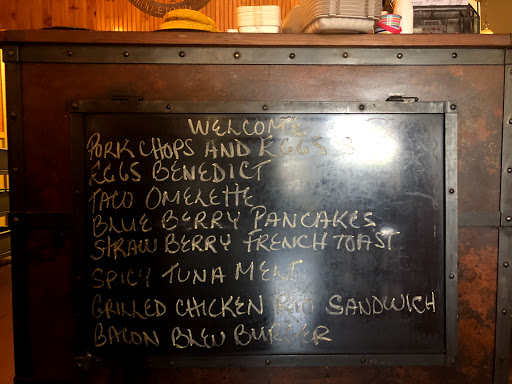 WELCOME
PORK CHOPS AND EGGS
EGGS BENEDICT
TACO OMELETTE
BLUE BERRY PANCAKES
STRAWBERRY FRENCH TOAST
SPICY TUNA MELT
GRILLED CHICKEN SANDWICH
BACON BLEU BURGER